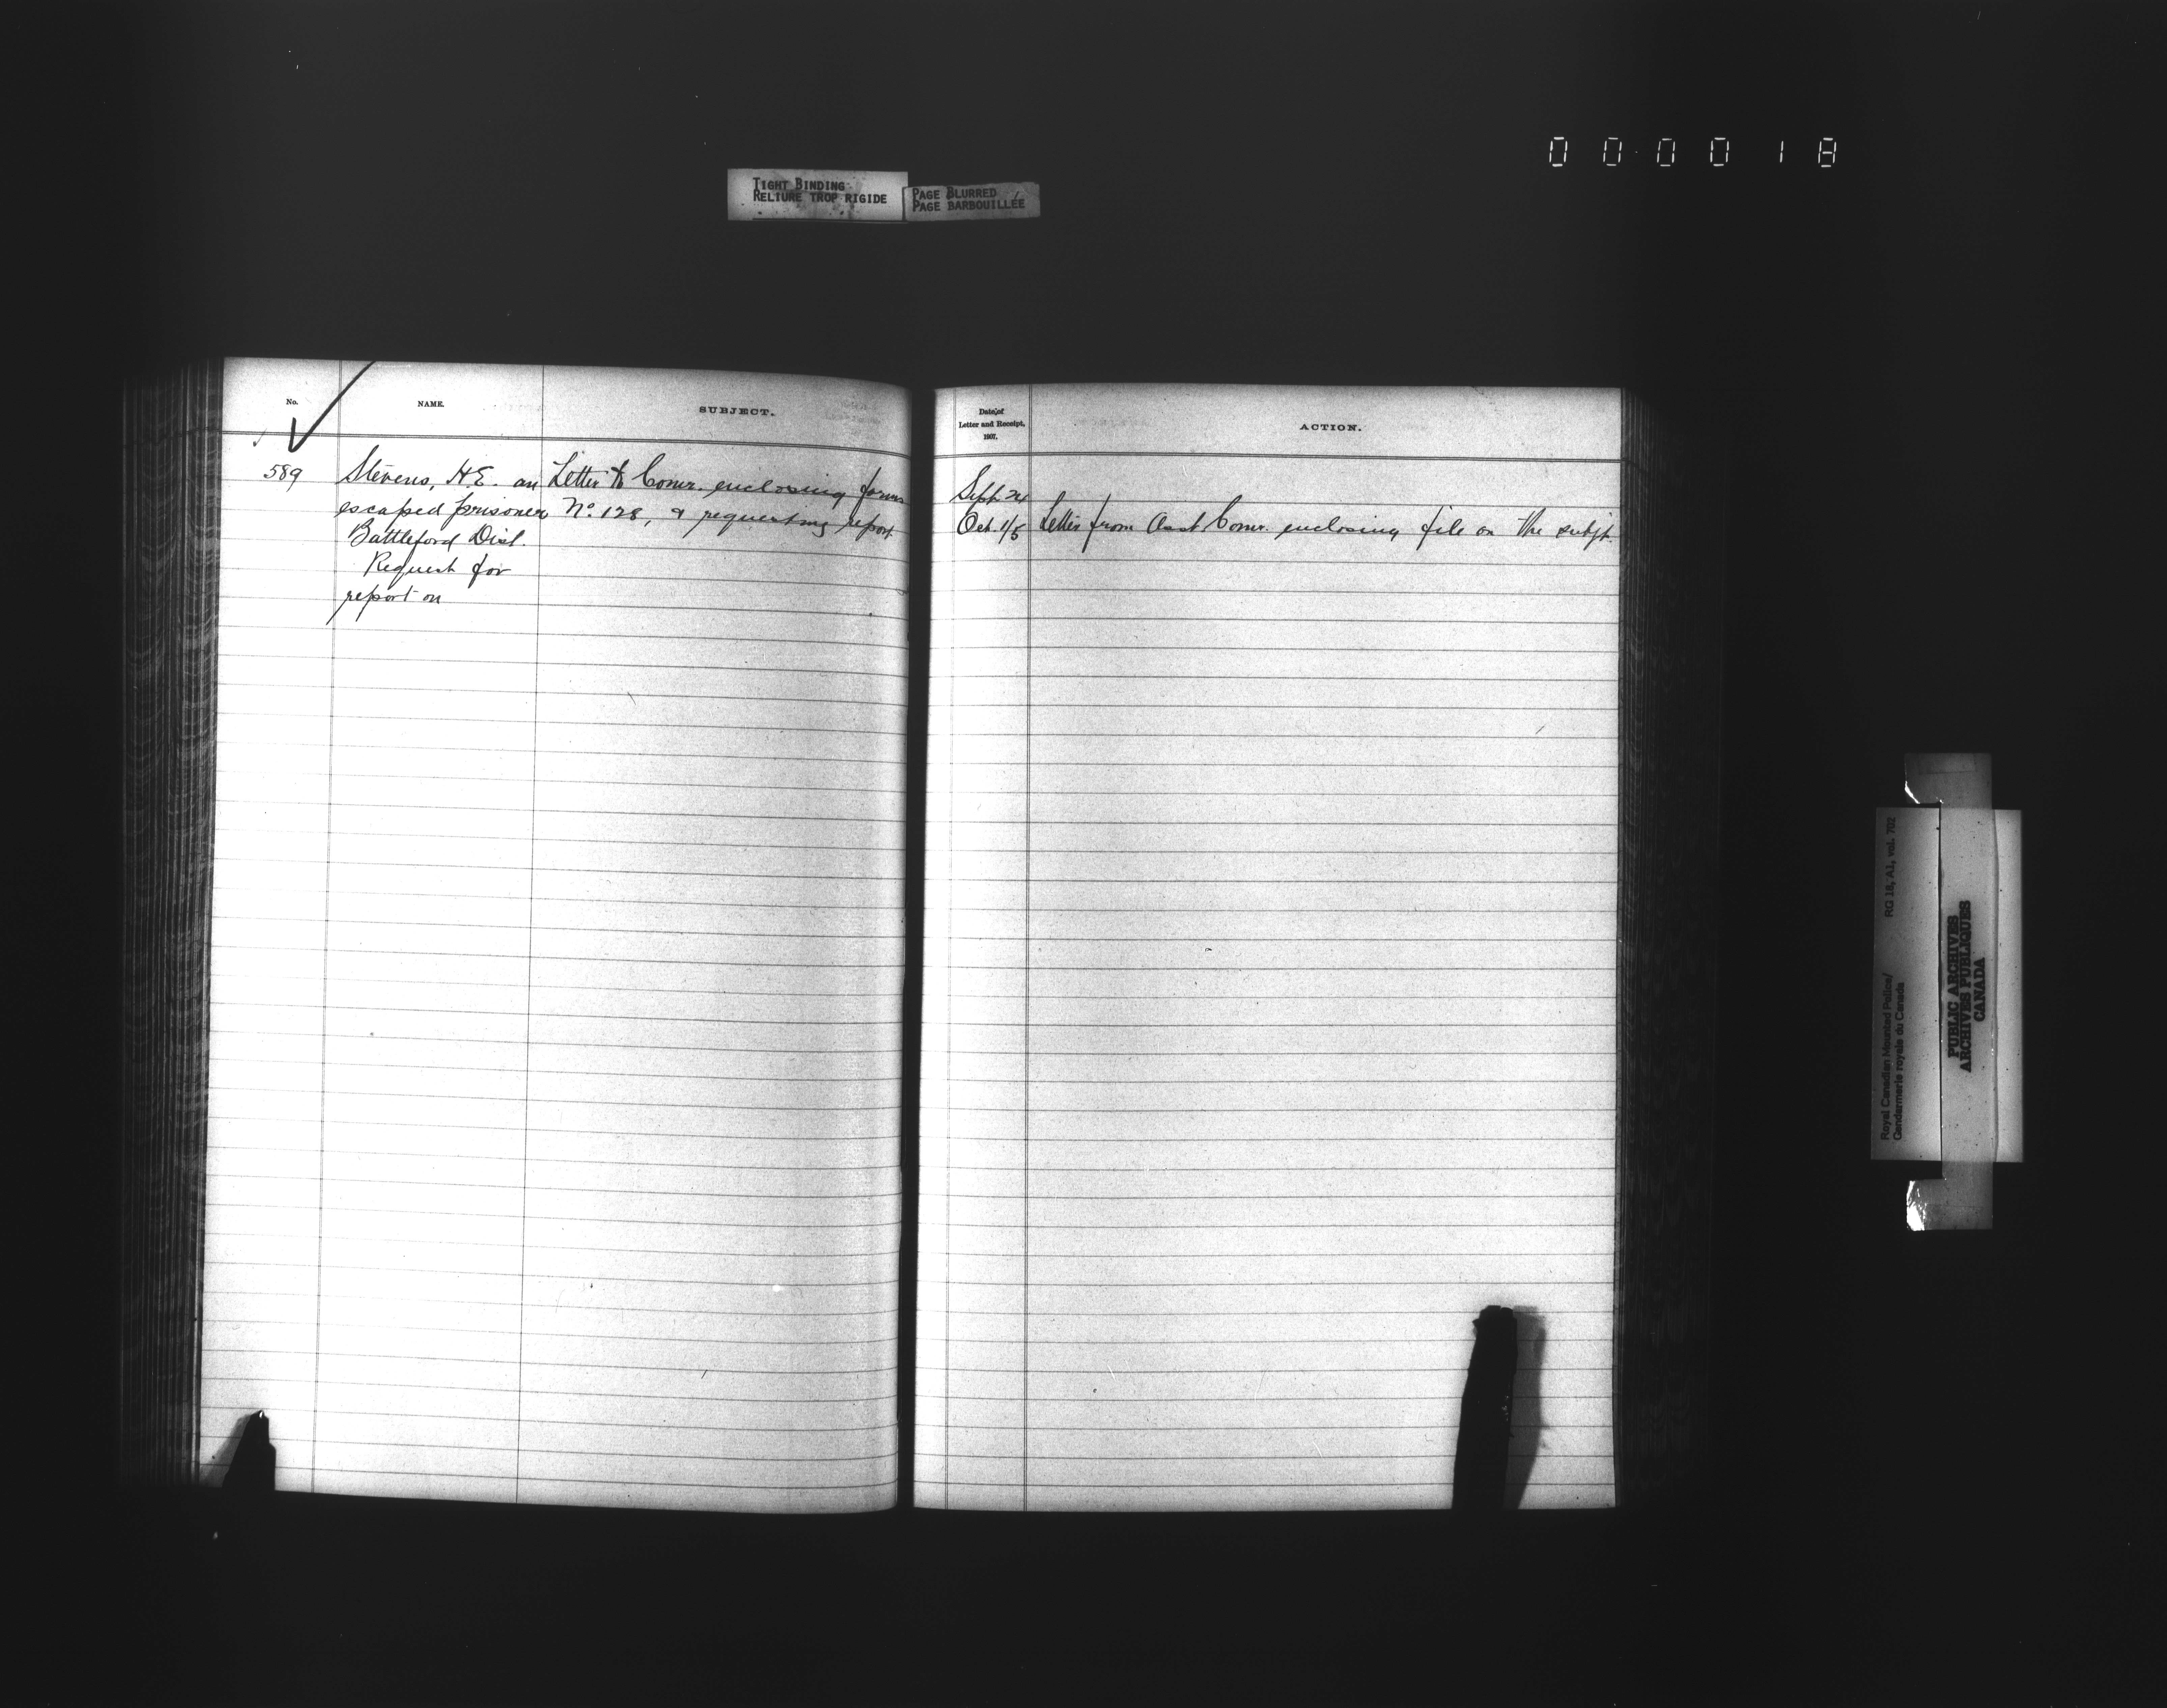 0 0 0 0 1 8
TIGHT BINDING
RELIURE TROP RIGIDE
PAGE BLURRED
PAGE BARBOUILLÉE
No.
NAME.
SUBJECT.
589
Stevens, H.E. an
escaped prisoner
Battleford Dist.
Request for
report on
Letter to Comr. enclosing forms
No. 128, & requesting report
Date of
Letter and Receipt,
1907.
ACTION.
Sept 24
Oct. 1/5 Letter from Asst Comr. enclosing file on the subjt.
Royal Canadian Mounted Police/ RG 18, A1, vol. 702
Gendarmerie royale du Canada
PUBLIC ARCHIVES
ARCHIVES PUBLIQUES
CANADA